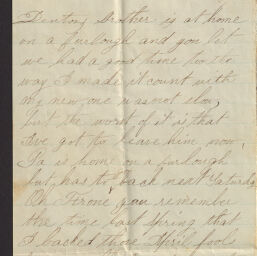 Denton, brother is at home
on a furlough and you bet
we had a good time by the
way I made it count with
my new one was not slow,
but the worst of it is that
I've got to leave him now,
Ja is home on a furlough
but has to back next Saturday
Oh Tirone you remember
the time last Spring that
I backed those April fool